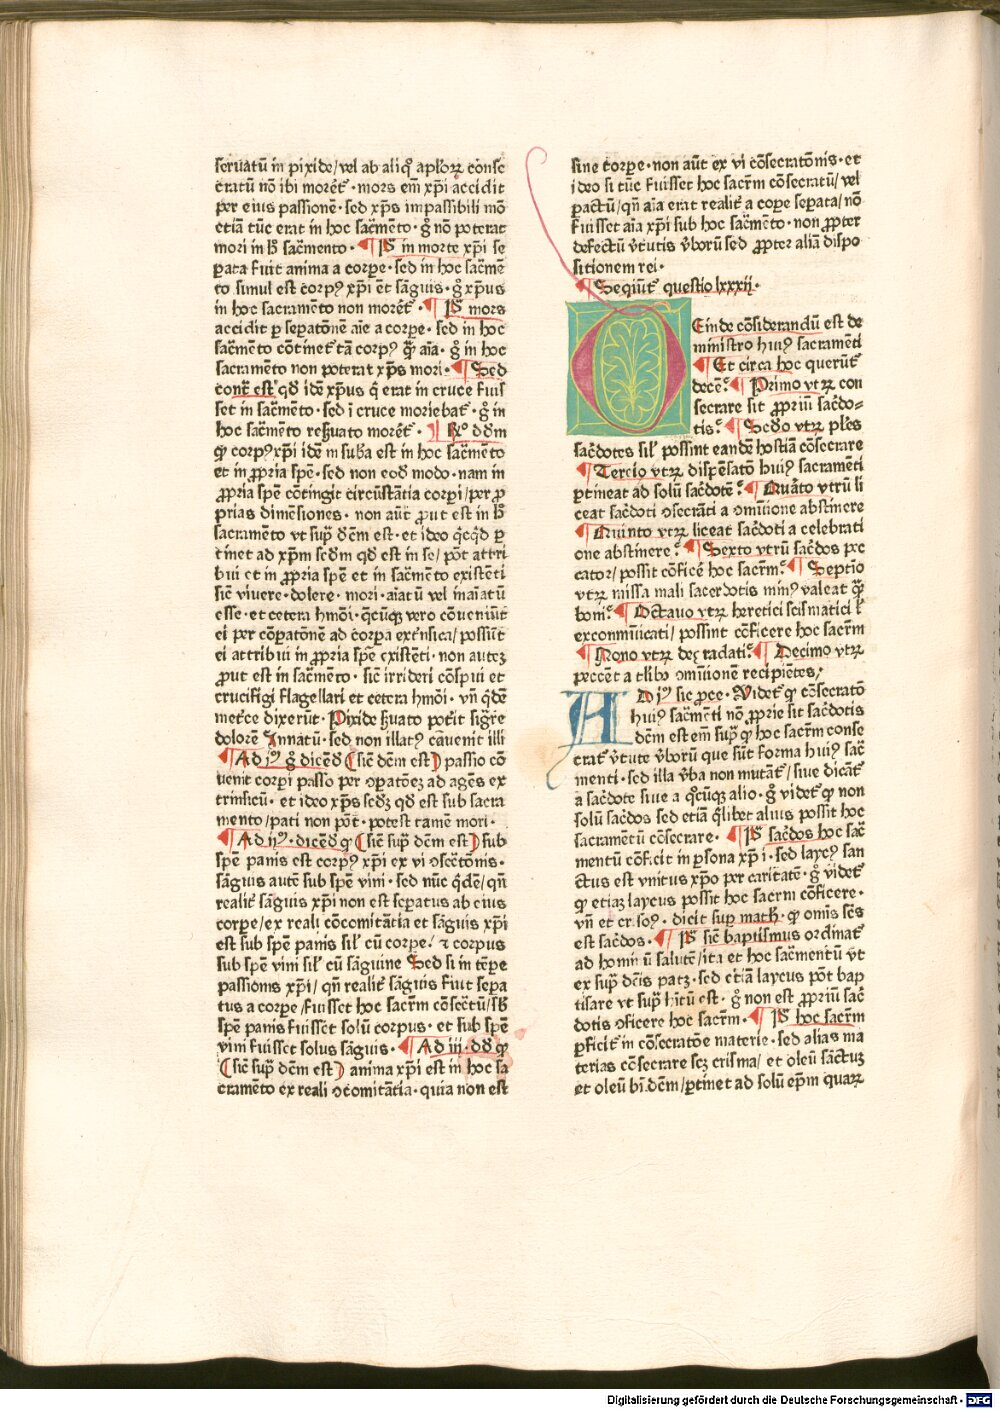 seruatū in pixide/vel ab aliq̊ apl'oꝝ conse
cratū nō ibi moreť · mors em̄ xp̄i accidit
per eius passionē · sed xp̄s impassibili mō
etiā tūc erat in hoc sac̄mēto · g̊ nō poterat
mori in h̊ sac̄mento · ¶ P̄ʳ in morte xp̄i se
ꝑata fuit anima a corꝑe · sed in hoc sac̄mē
to simul est corpꝰ xp̄i et̄ sāguis · g̊ xp̄us
in hoc sacramēto non moreť · ¶ P̄ʳ mors
accidit ꝑ seꝑatōnē aīe a corꝑe · sed in hoc
sac̄mēto cōtineť tā corpꝰ q̄ȝ aīa · g̊ in hoc
sacramēto non poterat xp̄s mori · ¶ Sed
cont̄ est̄ qd idē xp̄us q̄ erat in cruce fuis
set in sac̄mēto · sed ī cruce moriebať · g̊ in
hoc sac̄mēto reẜuato moreť · ¶ R̄º dōm
ꝙ corpꝰ xp̄i idē in sub̄a est in hoc sac̄mēto
et in ꝓpria spē · sed non eod̄ modo · nam in
ꝓpria spē cōtingit circūstātia corpi/per ꝓ
prias dimēsiones · non aūt ꝓut est in h̊
sacramēto vt supͣ dc̄m est · et ideo q̄cqd ꝑ
tinet ad xp̄m sedm qd est in se/pōt attri
bui et in ꝓpria spē et in sac̄mēto existēti
sic̄ viuere · dolere · mori · aīatū vel inaīatū
esse · et cetera hmōi · q̄cūqȝ vero cōueniūt
ei per cōꝑatōnē ad corꝑa ext̄nsica/possūt
ei attribui in ꝓpria spē existēti · non auteȝ
ꝓut est in sac̄mēto · sic̄ irrideri cōspui et
crucifigi flagellari et cetera hmōi · vn̄ q̄dē
met̄ce dixerūt · Pixide ẜuato potīt sig̊re
dolorē Innatū · sed non illatꝰ cāuenit illi
¶ Ad jᵐ g̊ dicēd̄ (sic̄ dc̄m est) passio cō
uenit corpi passo per ꝯꝑatōeȝ ad agēs ex
trinsicū · et ideo xp̄s sedȝ qd est sub sacra
mento/pati non pōt · potest tamē mori ·
¶ Ad ijᵐ · dicēd̄ ꝙ (sic̄ supͣ dc̄m est) sub
spē panis est corpꝰ xp̄i ex vi ꝯsec̄tōnis ·
sāguis autē sub spē vini · sed nūc q̄dē/qn̄
realiť sāguis xp̄i non est seꝑatus ab eius
corꝑe/ex reali cōcomitātia et sāguis xp̄i
est sub spē panis sil' cū corꝑe/ ⁊ corpus
sub spē vini sil' cū sāguine Sed si in tēꝑe
passionis xp̄i/qn̄ realiť sāguis fuit seꝑa
tus a corꝑe/fuisset hoc sac̄rm cōsec̄tū/sb̄
spē panis fuisset solū corpus · et sub spē
vini fuisset solus sāguis · ¶ Ad iij · dd̄ ꝙ
(sic̄ supͣ dc̄m est) anima xp̄i est in hoc sa
cramēto ex reali ꝯcomitātia · quia non est
sine corꝑe · non aūt ex vi cōsecratōnis · et
ideo si tūc fuisset hoc sac̄rm cōsecratū/vel
ꝑactū/qn̄ aīa erat realiť a coꝑe seꝑata/nō
fuisset aīa xp̄i sub hoc sac̄mēto · non ꝓpter
defectū v̄tutis v̄borū sed ꝓpter aliā dispo
sitionem rei ·
¶ Sequiť questio lxxxij ·
Deinde cōsiderandū est de
ministro huiꝰ sacramēti
¶ Et circa hoc querūť
decē: ¶ Primo vtꝝ con
secrare sit ꝓpriū sac̄do-
tis: ¶ Sc̄do vtꝝ ples
sac̄dotes sil' possint eandē hostiā cōsecrare
¶ Tercio vtꝝ dispēsatō huiꝰ sacramēti
ꝑtineat ad solū sac̄dotē: ¶ Quarto vtrū li
ceat sac̄doti ꝯsecrāti a ꝯmunione abstinere
¶ Quinto vtꝝ liceat sac̄doti a celebrati
one abstinere: ¶ Sexto vtrū sac̄dos pec
cator/possit cōficē hoc sac̄rm: ¶ Septīo
vtꝝ missa mali sacerdotis minꝰ valeat q̄ȝ
boni: ¶ Octauo vtꝝ heretici scismatici l'
excommunicati/possint cōficere hoc sac̄rm
¶ Nono vtꝝ degradati: ¶ Decimo vtꝝ
peccēt a tlibꝰ ꝯmunionē recipiētes/
AD jᵐ sic ꝓce · Videť ꝙ cōsecratō
huiꝰ sac̄mēti nō ꝓprie sit sac̄dotis
dc̄m est em̄ supͣ ꝙ hoc sac̄rm conse
crať v̄tute v̄borū que sūt forma huiꝰ sac̄
menti · sed illa v̄ba non mutāť/siue dicāť
a sac̄dote siue a q̊cūqȝ alio · g̊ videť ꝙ non
solū sac̄dos sed etiā q̄libet alius possit hoc
sacramētū cōsecrare · ¶ P̄ʳ sac̄dos hoc sac̄
mentū cōficit in ꝑsona xp̄i · sed laycꝰ san
ctus est vnitus xp̄o per caritatē · g̊ videť
ꝙ etiaȝ laycus possit hoc sac̄rm cōficere ·
vn̄ et crisoꝰ · dicit sup math̄ · ꝙ omīs sc̄s
est sac̄dos · ¶ P̄ʳ sic̄ baptismus ordinať
ad hominū salutē/ita et hoc sac̄mentū vt
ex supͣ dc̄is patȝ · sed etiā laycus pōt bap
tisare vt supͣ hītū est · g̊ non est ꝓpriū sac̄
dotis ꝯficere hoc sac̄rm · ¶ P̄ʳ hoc sac̄rm
ꝑficiť in cōsecratōe materie · sed alias ma
terias cōsecrare scȝ crisma/ et oleū sāctuȝ
et oleū bn̄dc̄m/ꝑtinet ad solū ep̄m quaꝝ
Digitalisierung gefördert durch die Deutsche Forschungsgemeinschaft - DFG